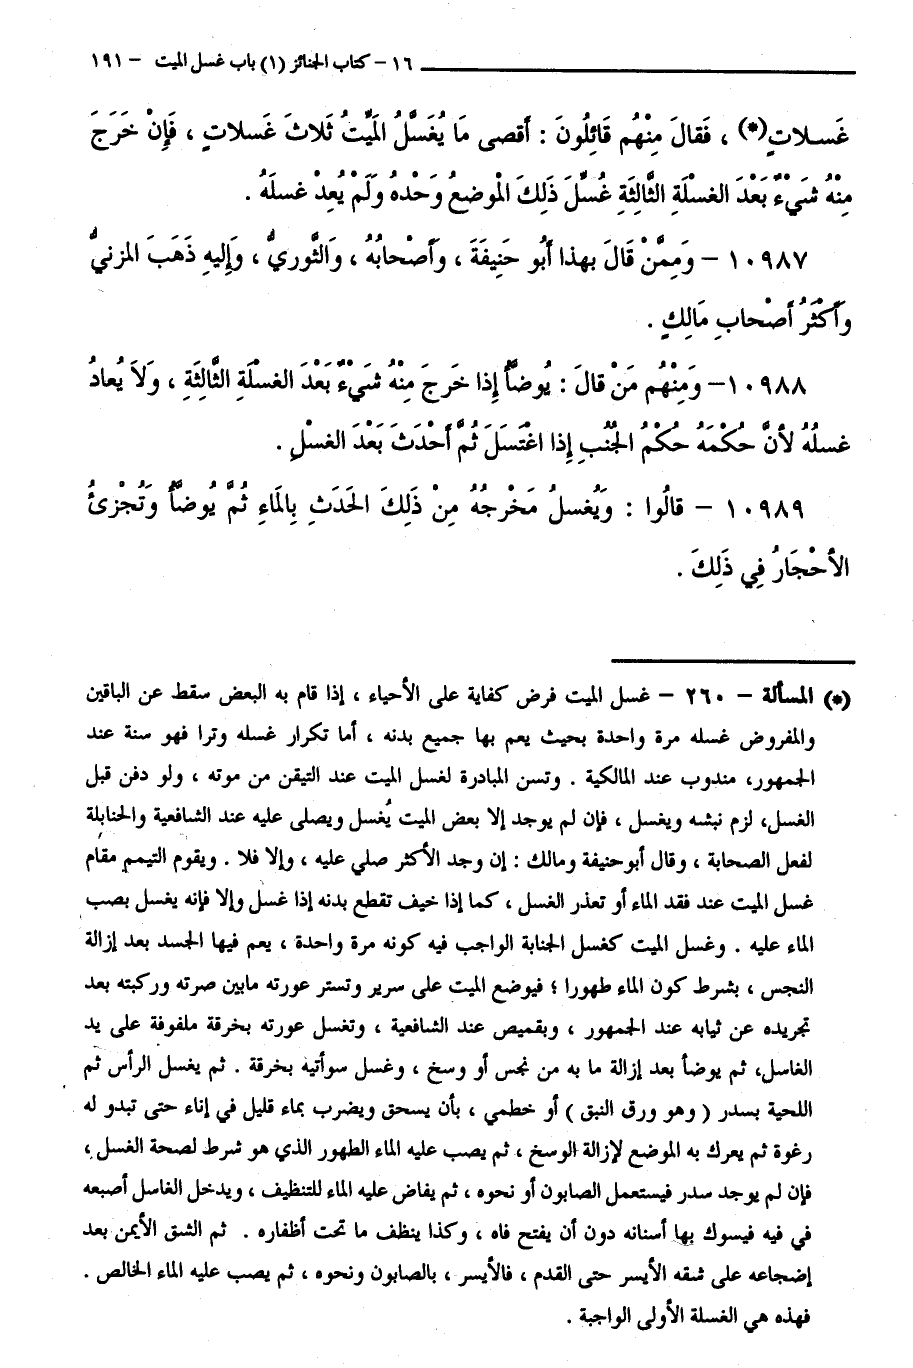 ١٦ - كتاب الجنائز (١) باب غسل الميت - ١٩١
غَسلاتٍ(*) ، فَقالَ مِنْهُم قَائِلُونَ : أَقصى مَا يُغَسَّلُ المَيِّتُ ثَلاثَ غَسلاتٍ ، فَإِنْ خَرَجَ
مِنْهُ شَيْءٌ بَعْدَ الغسلَةِ الثَّالِثَةِ غُسلَ ذَلِكَ الْموضعُ وَحْدهُ وَلَمْ يُعِدْ غسلَهُ .
١٠٩٨٧ - وَمِمَّنْ قَالَ بهذا أَبُو حَنِيفَةَ ، وَأَصْحابُهُ ، وَالثَّوريُّ ، وَإِليهِ ذَهَبَ المزنيُّ
وَأَكْثَرُ أَصْحابِ مَالِكٍ .
١٠٩٨٨ - وَمِنْهُم مَنْ قالَ : يُوضأُ إِذا خَرَجَ مِنْهُ شَيْءٌ بَعْدَ الغسلَةِ الثَّالِثَةِ ، وَلاَ يُعادُ
غسلُهُ لأَنَّ حُكْمَهُ حُكْمُ الجُنُبِ إِذا اغْتَسَلَ ثُمَّ أَحْدَثَ بَعْدَ الغسْلِ .
١٠٩٨٩ - قالُوا : وَيُغسلُ مَخْرجُهُ مِنْ ذَلِكَ الحَدَثِ بِالمَاءِ ثُمَّ يُوضأُ وَتُجْزِئُ
الأَحْجَارُ فِي ذَلِكَ .
(*) المسألة - ٢٦٠ - غسل الميت فرض كفاية على الأحياء ، إذا قام به البعض سقط عن الباقين
والمفروض غسله مرة واحدة بحيث يعم بها جميع بدنه ، أما تكرار غسله وترا فهو سنة عند
الجمهور، مندوب عند المالكية . وتسن المبادرة لغسل الميت عند التيقن من موته ، ولو دفن قبل
الغسل، لزم نبشه ويغسل ، فإن لم يوجد إلا بعض الميت يُغسل ويصلى عليه عند الشافعية والحنابلة
لفعل الصحابة ، وقال أبوحنيفة ومالك : إن وجد الأكثر صلي عليه ، وإلا فلا . ويقوم التيمم مقام
غسل الميت عند فقد الماء أو تعذر الغسل ، كما إذا خيف تقطع بدنه إذا غسل وإلا فإنه يغسل بصب
الماء عليه . وغسل الميت كغسل الجنابة الواجب فيه كونه مرة واحدة ، يعم فيها الجسد بعد إزالة
النجس ، بشرط كون الماء طهورا ؛ فيوضع الميت على سرير وتستر عورته مابين صرته وركبته بعد
تجريده عن ثيابه عند الجمهور ، وبقميص عند الشافعية ، وتغسل عورته بخرقة ملفوفة على يد
الغاسل، ثم يوضأ بعد إزالة ما به من نجس أو وسخ ، وغسل سوأتيه بخرقة . ثم يغسل الرأس ثم
اللحية بسدر ( وهو ورق النبق ) أو خطمي ، بأن يسحق ويضرب بماء قليل في إناء حتى تبدو له
رغوة ثم يعرك به الموضع لإزالة الوسخ ، ثم يصب عليه الماء الطهور الذي هو شرط لصحة الغسل ،
فإن لم يوجد سدر فيستعمل الصابون أو نحوه ، ثم يفاض عليه الماء للتنظيف ، ويدخل الغاسل أصبعه
في فيه فيسوك بها أسنانه دون أن يفتح فاه ، وكذا ينظف ما تحت أظفاره . ثم الشق الأيمن بعد
إضجاعه على شقه الأيسر حتى القدم ، فالأيسر ، بالصابون ونحوه ، ثم يصب عليه الماء الخالص .
فهذه هي الغسلة الأولى الواجبة .